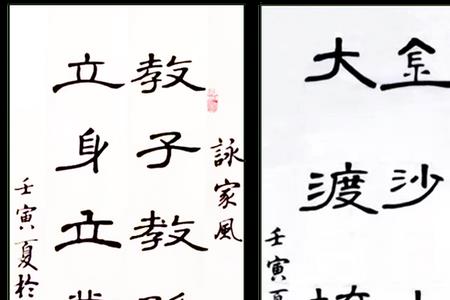 詠家風
教子教
立身立
壬寅夏於
金沙
大渡
壬寅夏